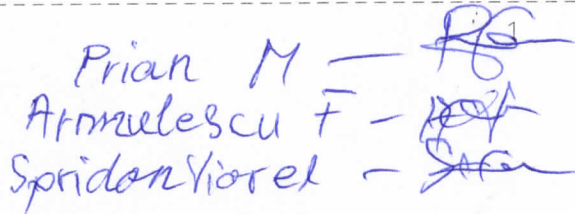 Prian M —
Armulescu F -
Spridon Viorel -